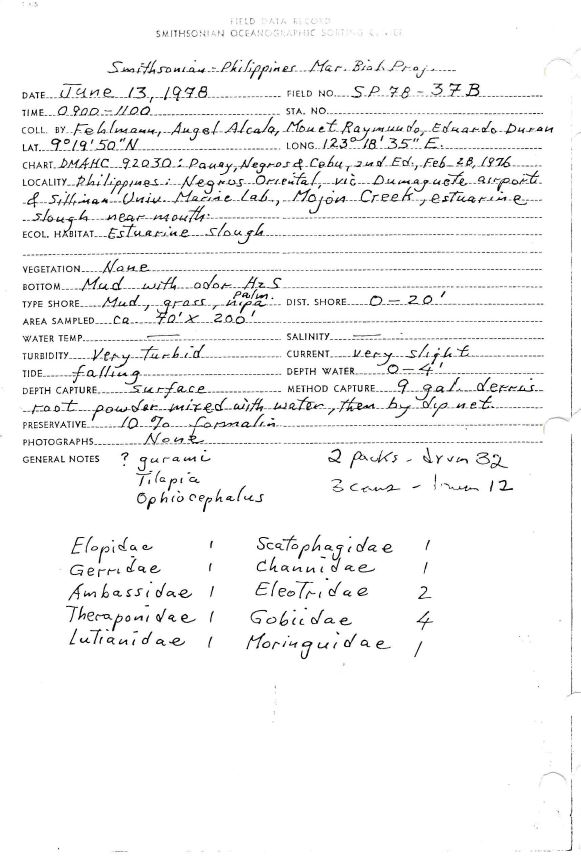 FIELD DATA RECORD
SMITHSONIAN OCEANOGRAPHIC SORTING CENTER
Smithsonian-Philippines Mar. Biol. Proj.
DATE June 13, 1978 FIELD NO. SP 78-37B
TIME 0900-1100 STA. NO.
COLL. BY Fehlmann, Angel Alcala, Monet Raymundo, Eduardo Duran
LAT. 9°19'50"N LONG. 123°18'35"E.
CHART DMAHC 92030: Panay, Negros & Cebu, 2nd Ed., Feb 28, 1976
LOCALITY Philippines: Negros Oriental, vic Dumaguete airport
& Silliman Univ. Marine Lab., Mojon Creek, estuarine
slough near mouth.
ECOL. HABITAT Estuarine slough
VEGETATION None
BOTTOM Mud with odor H2S
TYPE SHORE Mud, grass, nipa palm. DIST. SHORE 0-20'
AREA SAMPLED ca. 70' x 200'
WATER TEMP — SALINITY —
TURBIDITY Very turbid CURRENT very slight
TIDE falling DEPTH WATER 0-4'
DEPTH CAPTURE surface METHOD CAPTURE 9 gal. derris
root powder mixed with water, then by dip net.
PRESERVATIVE 10% formalin
PHOTOGRAPHS None
GENERAL NOTES ? gurami 2 packs - drum 32
Tilapia 3 cans - drum 12
Ophiocephalus
Elopidae 1 Scatophagidae 1
Gerridae 1 Channidae 1
Ambassidae 1 Eleotridae 2
Theraponidae 1 Gobiidae 4
Lutianidae 1 Moringuidae 1